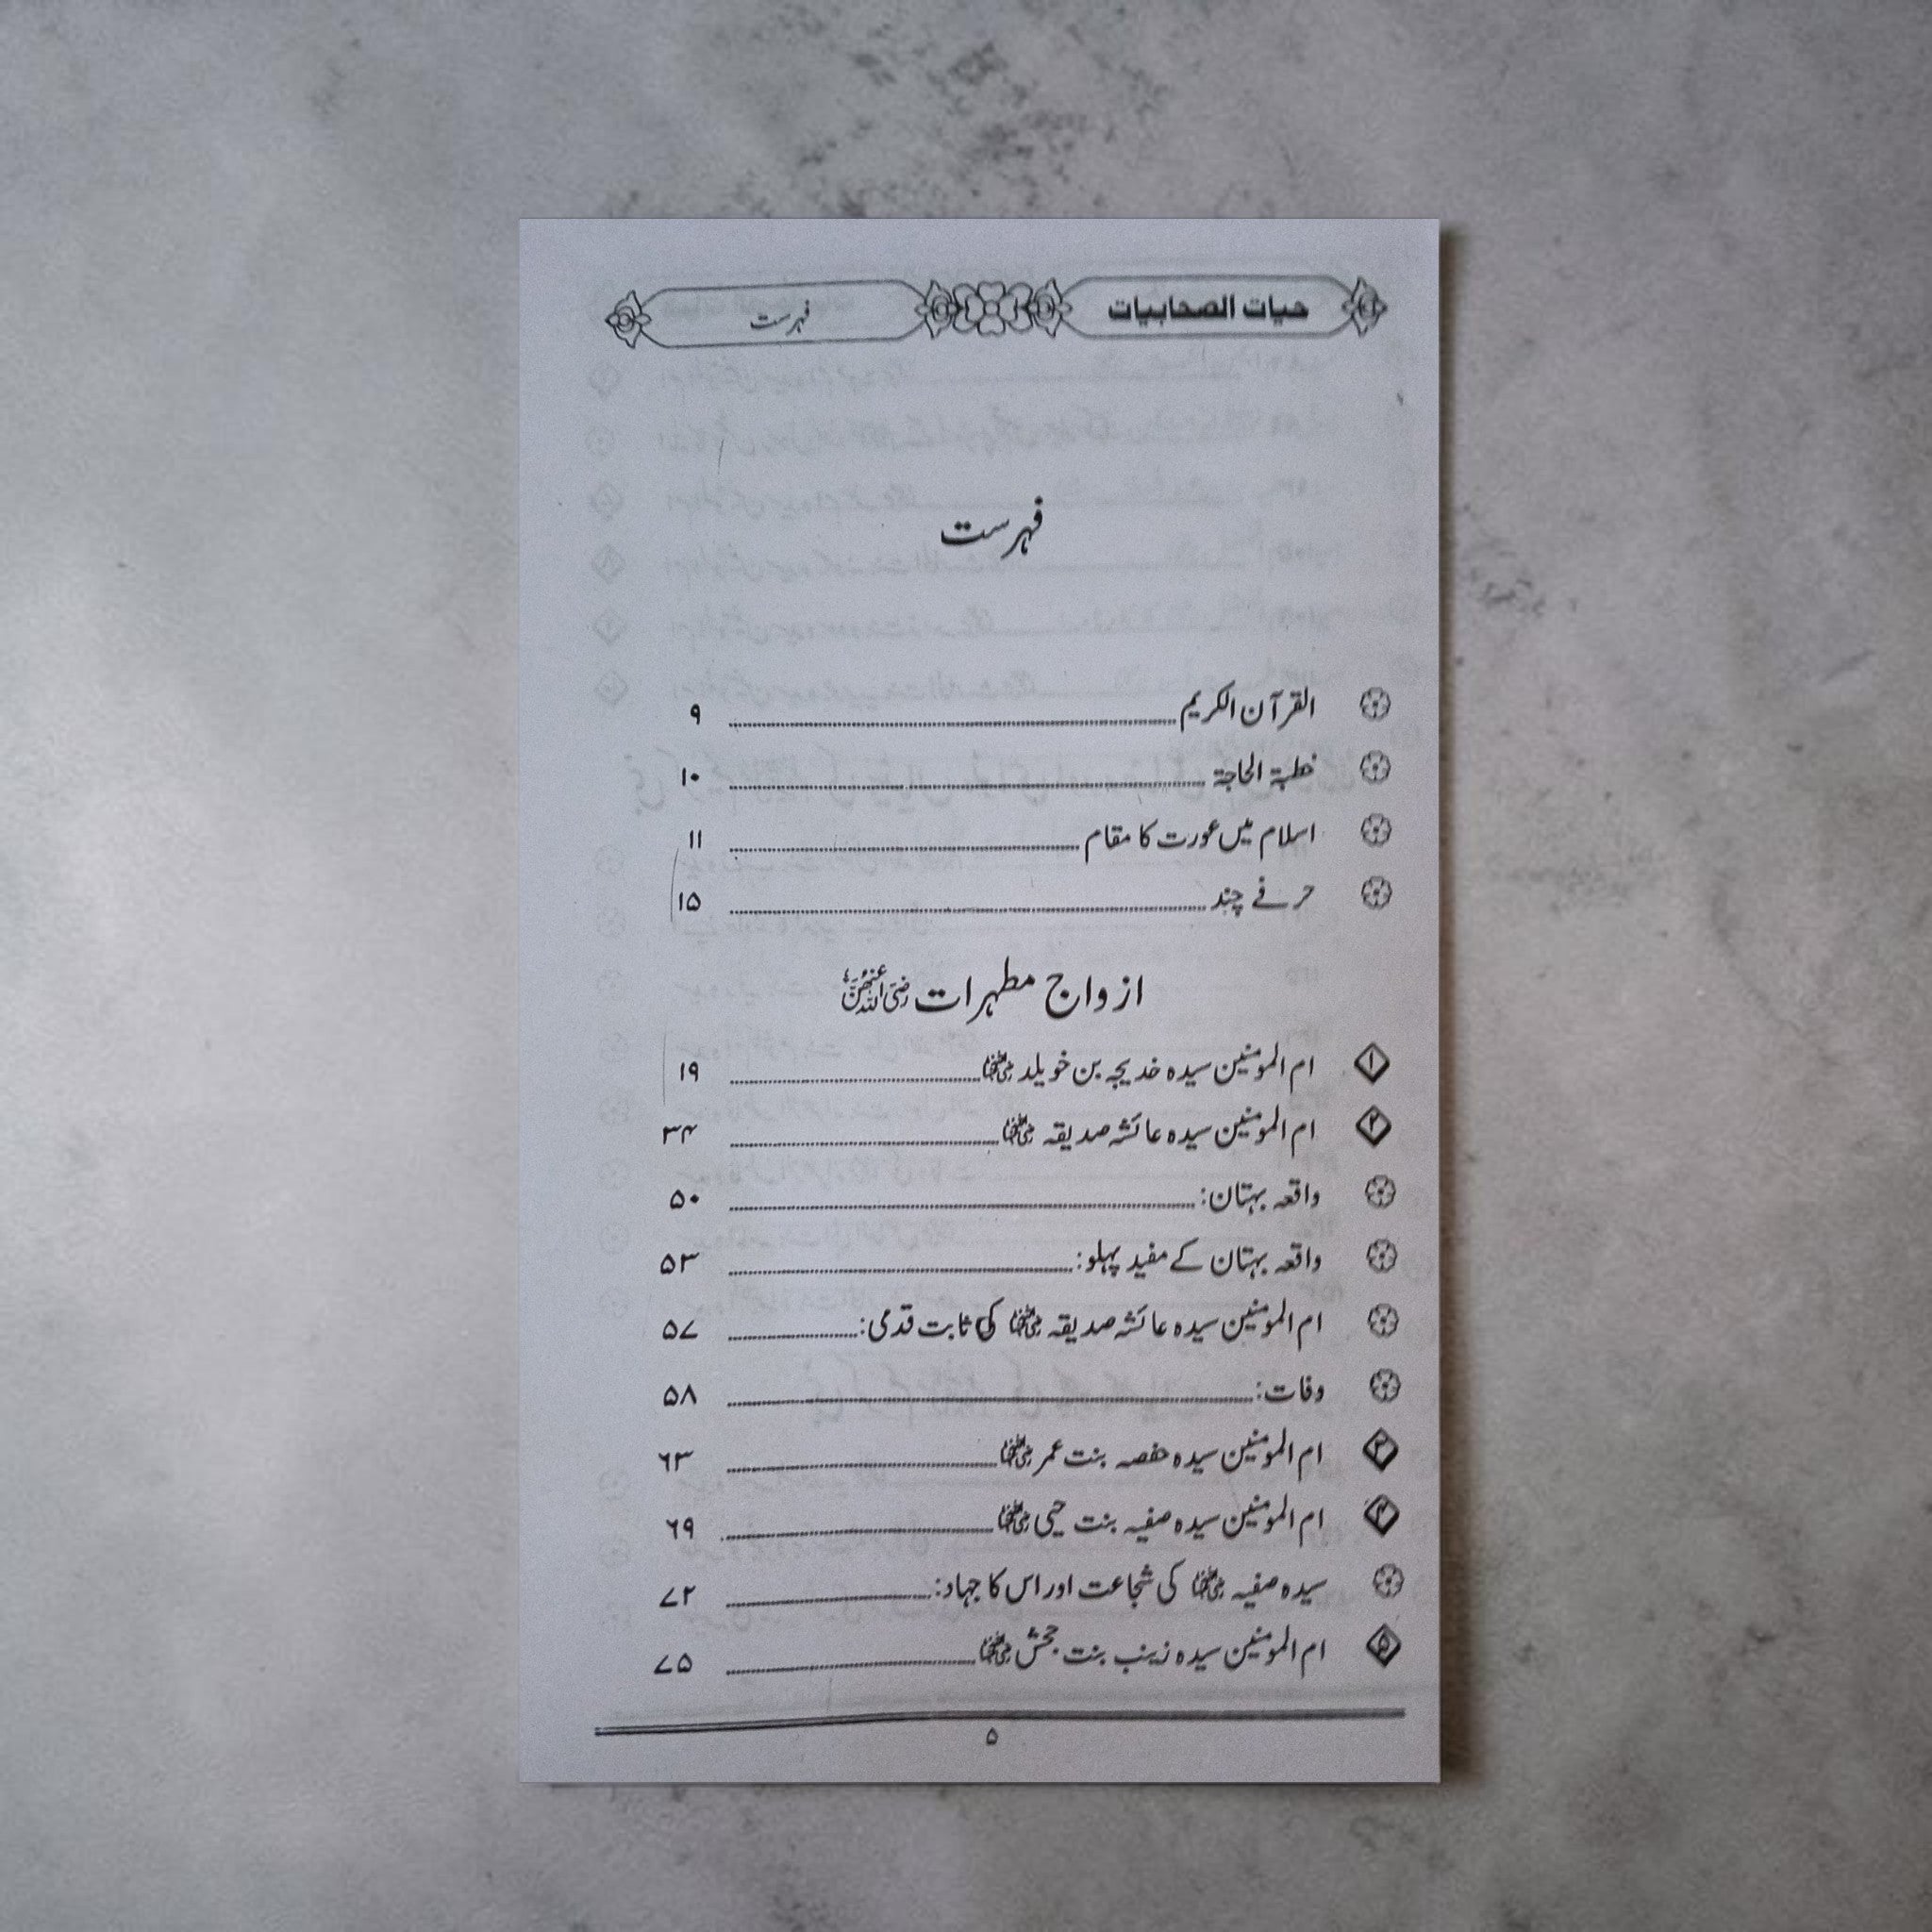 حیات الصحابیات فہرست
فہرست
القرآن الکریم ۹
خطبۃ الحاجۃ ۱۰
اسلام میں عورت کا مقام ۱۱
حرفے چند ۱۵
ازواج مطہرات رضی اللہ عنہن
۱ ام المومنین سیدہ خدیجہ بن خویلد رضی اللہ عنہا ۱۹
۲ ام المومنین سیدہ عائشہ صدیقہ رضی اللہ عنہا ۳۴
واقعہ بہتان: ۵۰
واقعہ بہتان کے مفید پہلو: ۵۳
ام المومنین سیدہ عائشہ صدیقہ رضی اللہ عنہا کی ثابت قدمی: ۵۷
وفات: ۵۸
۳ ام المومنین سیدہ حفصہ بنت عمر رضی اللہ عنہا ۶۳
۴ ام المومنین سیدہ صفیہ بنت حیی رضی اللہ عنہا ۶۹
سیدہ صفیہ رضی اللہ عنہا کی شجاعت اور اس کا جہاد: ۷۲
۵ ام المومنین سیدہ زینب بنت جحش رضی اللہ عنہا ۷۵
۵